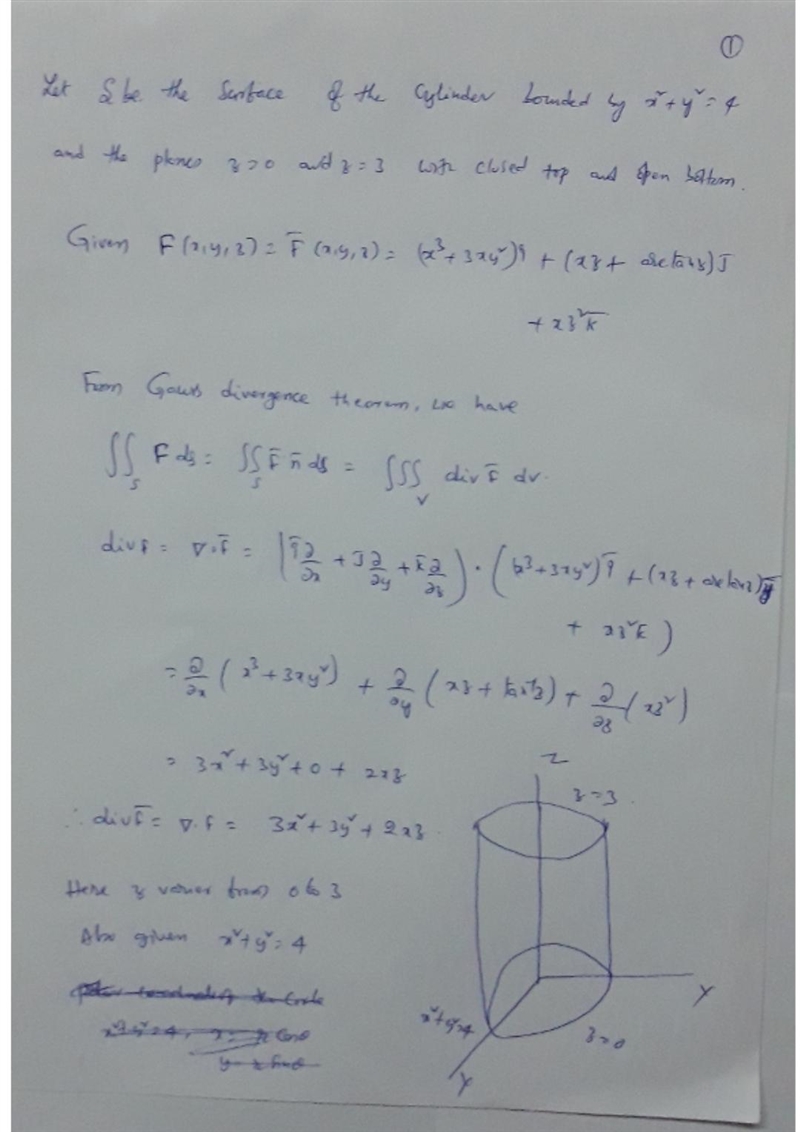 ①
Let S be the Surface of the Cylinder bounded by x² + y² = 4
and the planes z=0 and z=3 with closed top and open bottom.
Given F(x,y,z) = F̄(x,y,z) = (x³+3xy²)ī + (xz + arctanz)J̄
+ xz²k̄
From Gauss divergence theorem, we have
∬_S F ds = ∬_S F̄ n̄ ds = ∭_V div F̄ dv.
div F = ∇·F̄ = (ī ∂/∂x + J̄ ∂/∂y + k̄ ∂/∂z) · ((x³+3xy²)ī + (xz + arctanz)J̄
+ xz²k̄)
= ∂/∂x (x³+3xy²) + ∂/∂y (xz + tan⁻¹z) + ∂/∂z (xz²)
= 3x² + 3y² + 0 + 2xz
∴ div F̄ = ∇·F = 3x² + 3y² + 2xz
Here z varies from 0 to 3
Also given x² + y² = 4
x²+y²=4, x = r Cosθ
y = r Sinθ
Z
z=3
Y
x²+y²=4
z=0
X